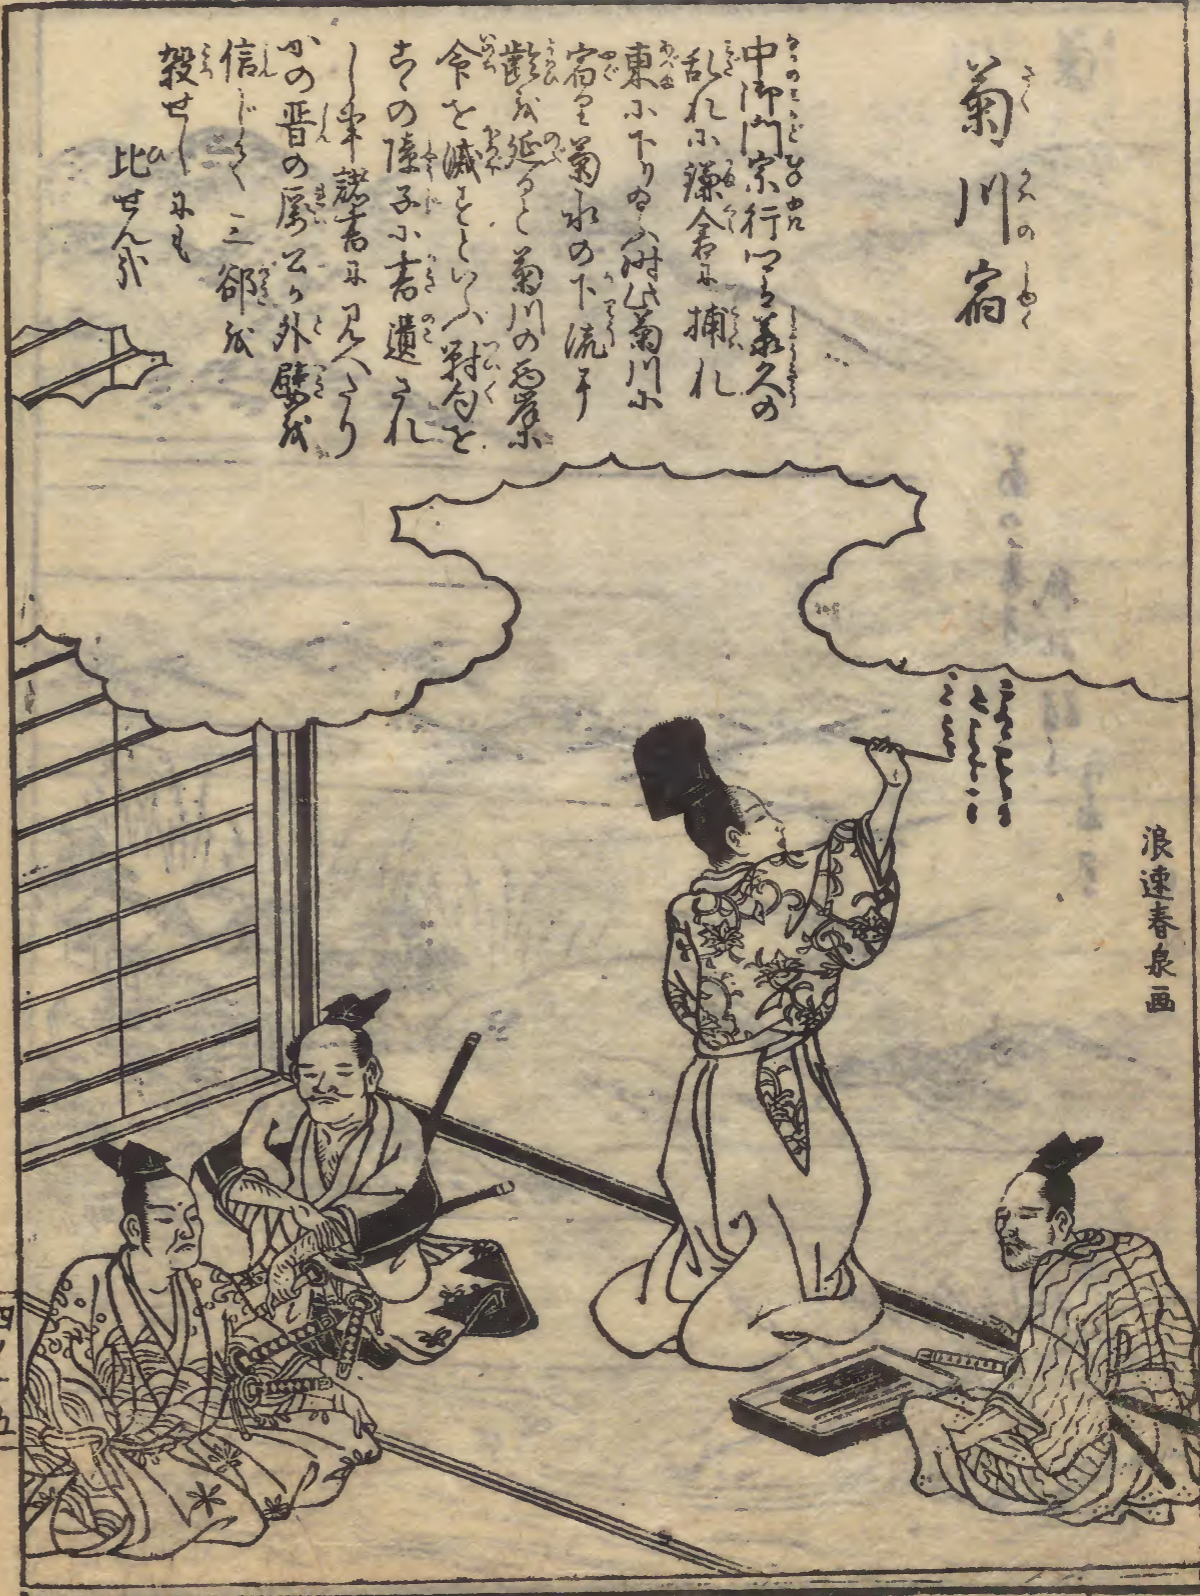 菊川宿
中御門宗行卿ハ承久の
乱れに鎌倉に捕れ
東に下り給ふ時此菊川に
宿る菊水の下流汲
齢を延ると菊川の西岸に
命を滅すといふ対句を
こゝの障子に書遺され
し事諸書に見へたり
かの晋の厲公が外嬖を
信じて三郤を
殺せしにも
比せんか
浪速春泉画